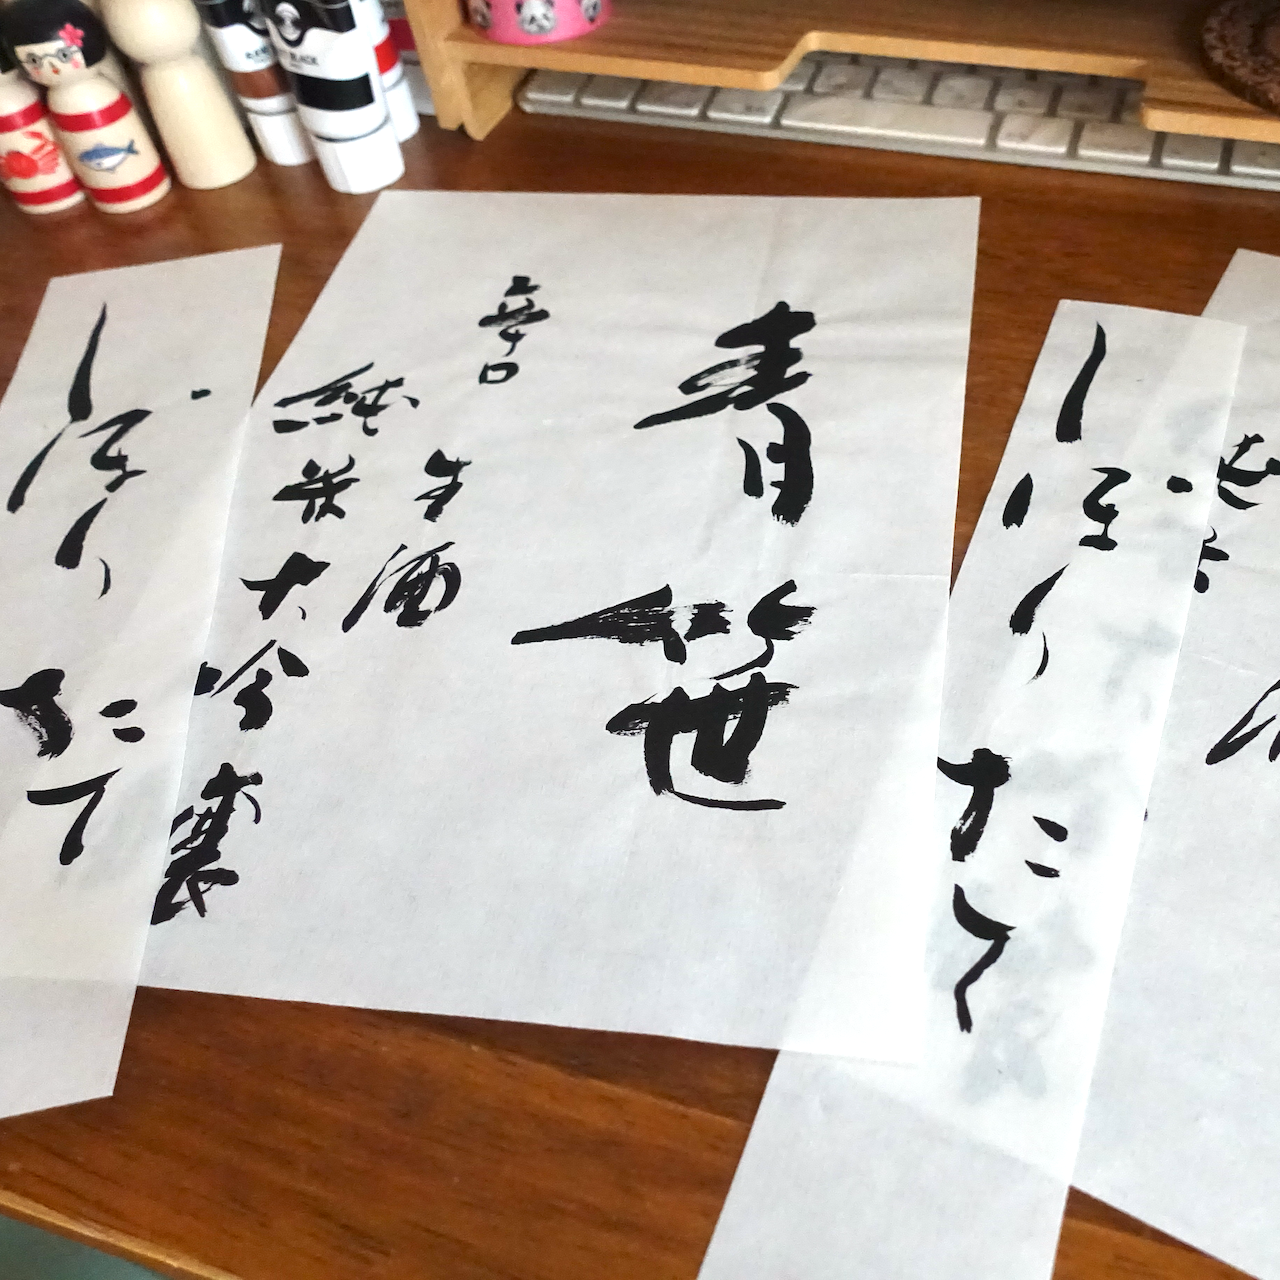 しぼりたて
青笹
辛口
生酒
純米大吟醸
しぼりたて